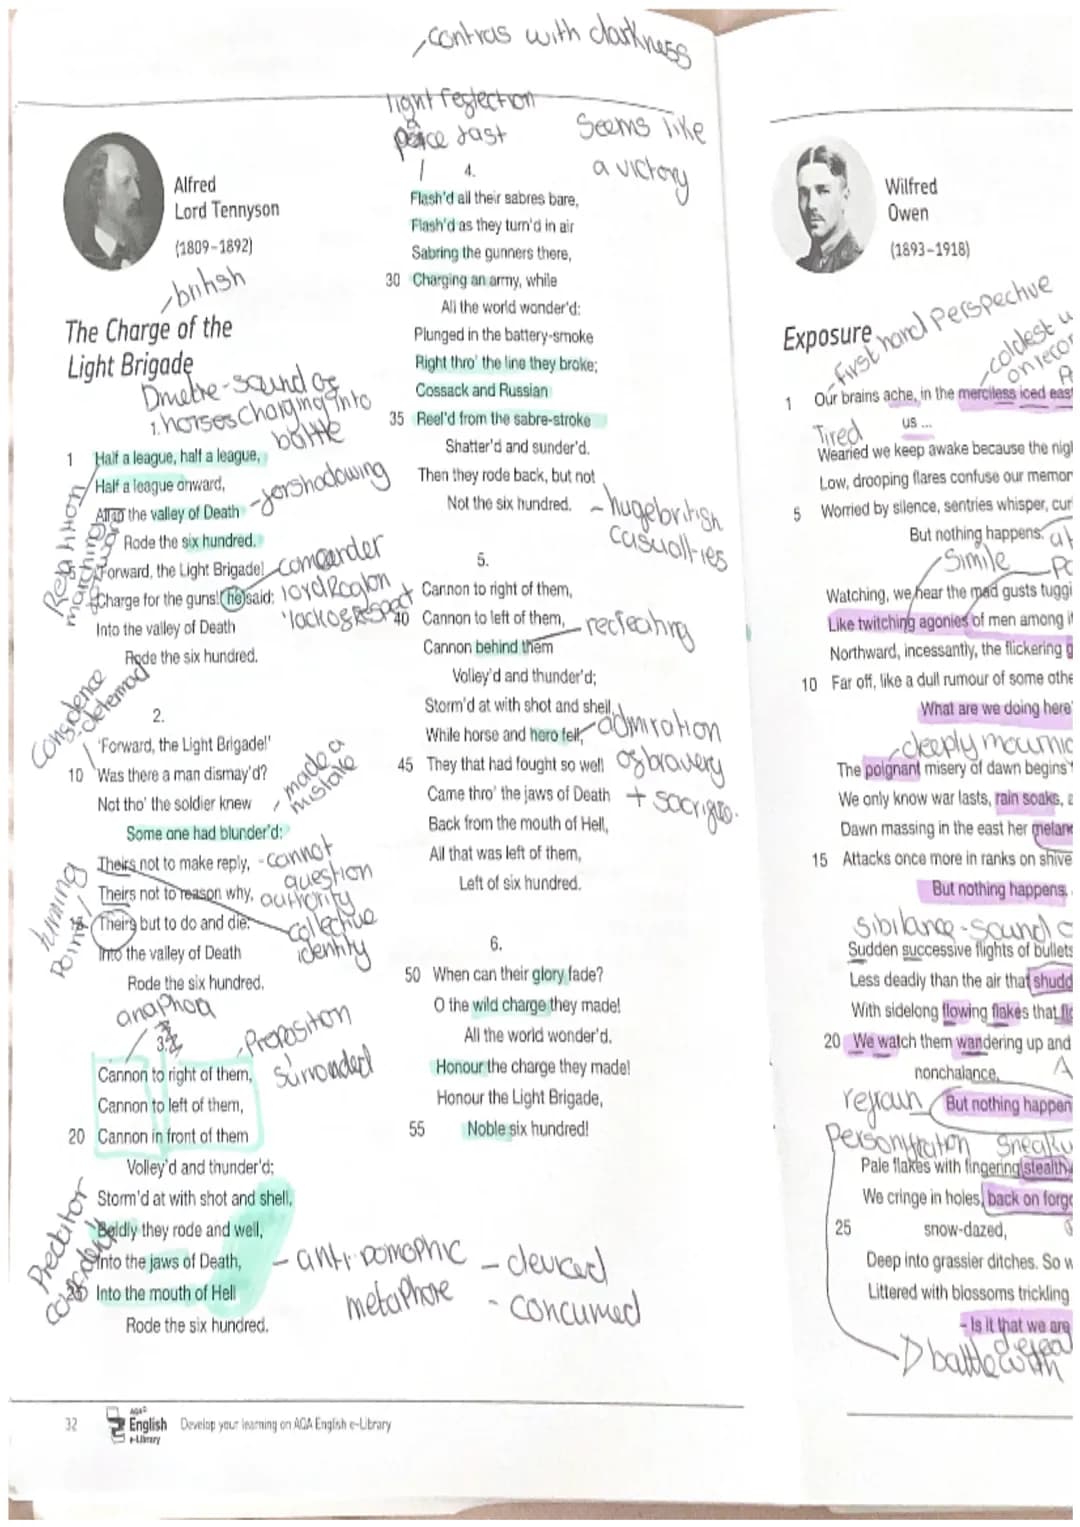 contras with darkness
light reflection
pace fast
Seems like
a victory
Alfred
Lord Tennyson
(1809–1892)
british
The Charge of the
Light Brigade
Dmetre - sound of
horses charging into
battle
1.
1 Half a league, half a league,
Half a league onward,
All in the valley of Death
Rode the six hundred.
'Forward, the Light Brigade!
Charge for the guns!' he said:
Into the valley of Death
Rode the six hundred.
Repitition
marching
forshadowing
comeander
lack of respect
Considence
determod
2.
'Forward, the Light Brigade!'
10 Was there a man dismay'd?
Not tho' the soldier knew
Some one had blunder'd:
Theirs not to make reply,
Theirs not to reason why,
15 Theirs but to do and die:
Into the valley of Death
Rode the six hundred.
made a
mistake
- cannot
question
authority
collective
identity
turning
point
anaphoa
Preposition
surronded
3.
Cannon to right of them,
Cannon to left of them,
20 Cannon in front of them
Volley'd and thunder'd;
Storm'd at with shot and shell,
Boldly they rode and well,
Into the jaws of Death,
25 Into the mouth of Hell
Rode the six hundred.
Preditor
- anti-pomophic
metaphore
- deuced
- concumed
4.
Flash'd all their sabres bare,
Flash'd as they turn'd in air
Sabring the gunners there,
30 Charging an army, while
All the world wonder'd:
Plunged in the battery-smoke
Right thro' the line they broke;
Cossack and Russian
35 Reel'd from the sabre-stroke
Shatter'd and sunder'd.
Then they rode back, but not
Not the six hundred.
- huge british
casualties
5.
Cannon to right of them,
40 Cannon to left of them,
Cannon behind them
Volley'd and thunder'd;
Storm'd at with shot and shell,
While horse and hero fell,
45 They that had fought so well
Came thro' the jaws of Death
Back from the mouth of Hell,
All that was left of them,
Left of six hundred.
recreating
admiration
of bravery
+ sacrifice.
6.
50 When can their glory fade?
O the wild charge they made!
All the world wonder'd.
Honour the charge they made!
Honour the Light Brigade,
55 Noble six hundred!
32
AQA
English
e-Library
Develop your learning on AQA English e-Library
Wilfred
Owen
(1893–1918)
Exposure
- First hand Perspective
- coldest w
on recor
1 Our brains ache, in the merciless iced east
us ...
Tired
Wearied we keep awake because the nigh
Low, drooping flares confuse our memor
5 Worried by silence, sentries whisper, cur
But nothing happens.
Simile
Watching, we hear the mad gusts tuggi
Like twitching agonies of men among it
Northward, incessantly, the flickering g
10 Far off, like a dull rumour of some othe
What are we doing here
- deeply mournic
The poignant misery of dawn begins t
We only know war lasts, rain soaks, a
Dawn massing in the east her melanc
15 Attacks once more in ranks on shive
But nothing happens.
Sibilance - sound o
Sudden successive flights of bullets
Less deadly than the air that shudd
With sidelong flowing flakes that flo
20 We watch them wandering up and
nonchalance,
refraun
But nothing happen
Personification
Sneaky
Pale flakes with fingering stealth
We cringe in holes, back on forgo
25 snow-dazed,
Deep into grassier ditches. So w
Littered with blossoms trickling
- Is it that we are
battle with